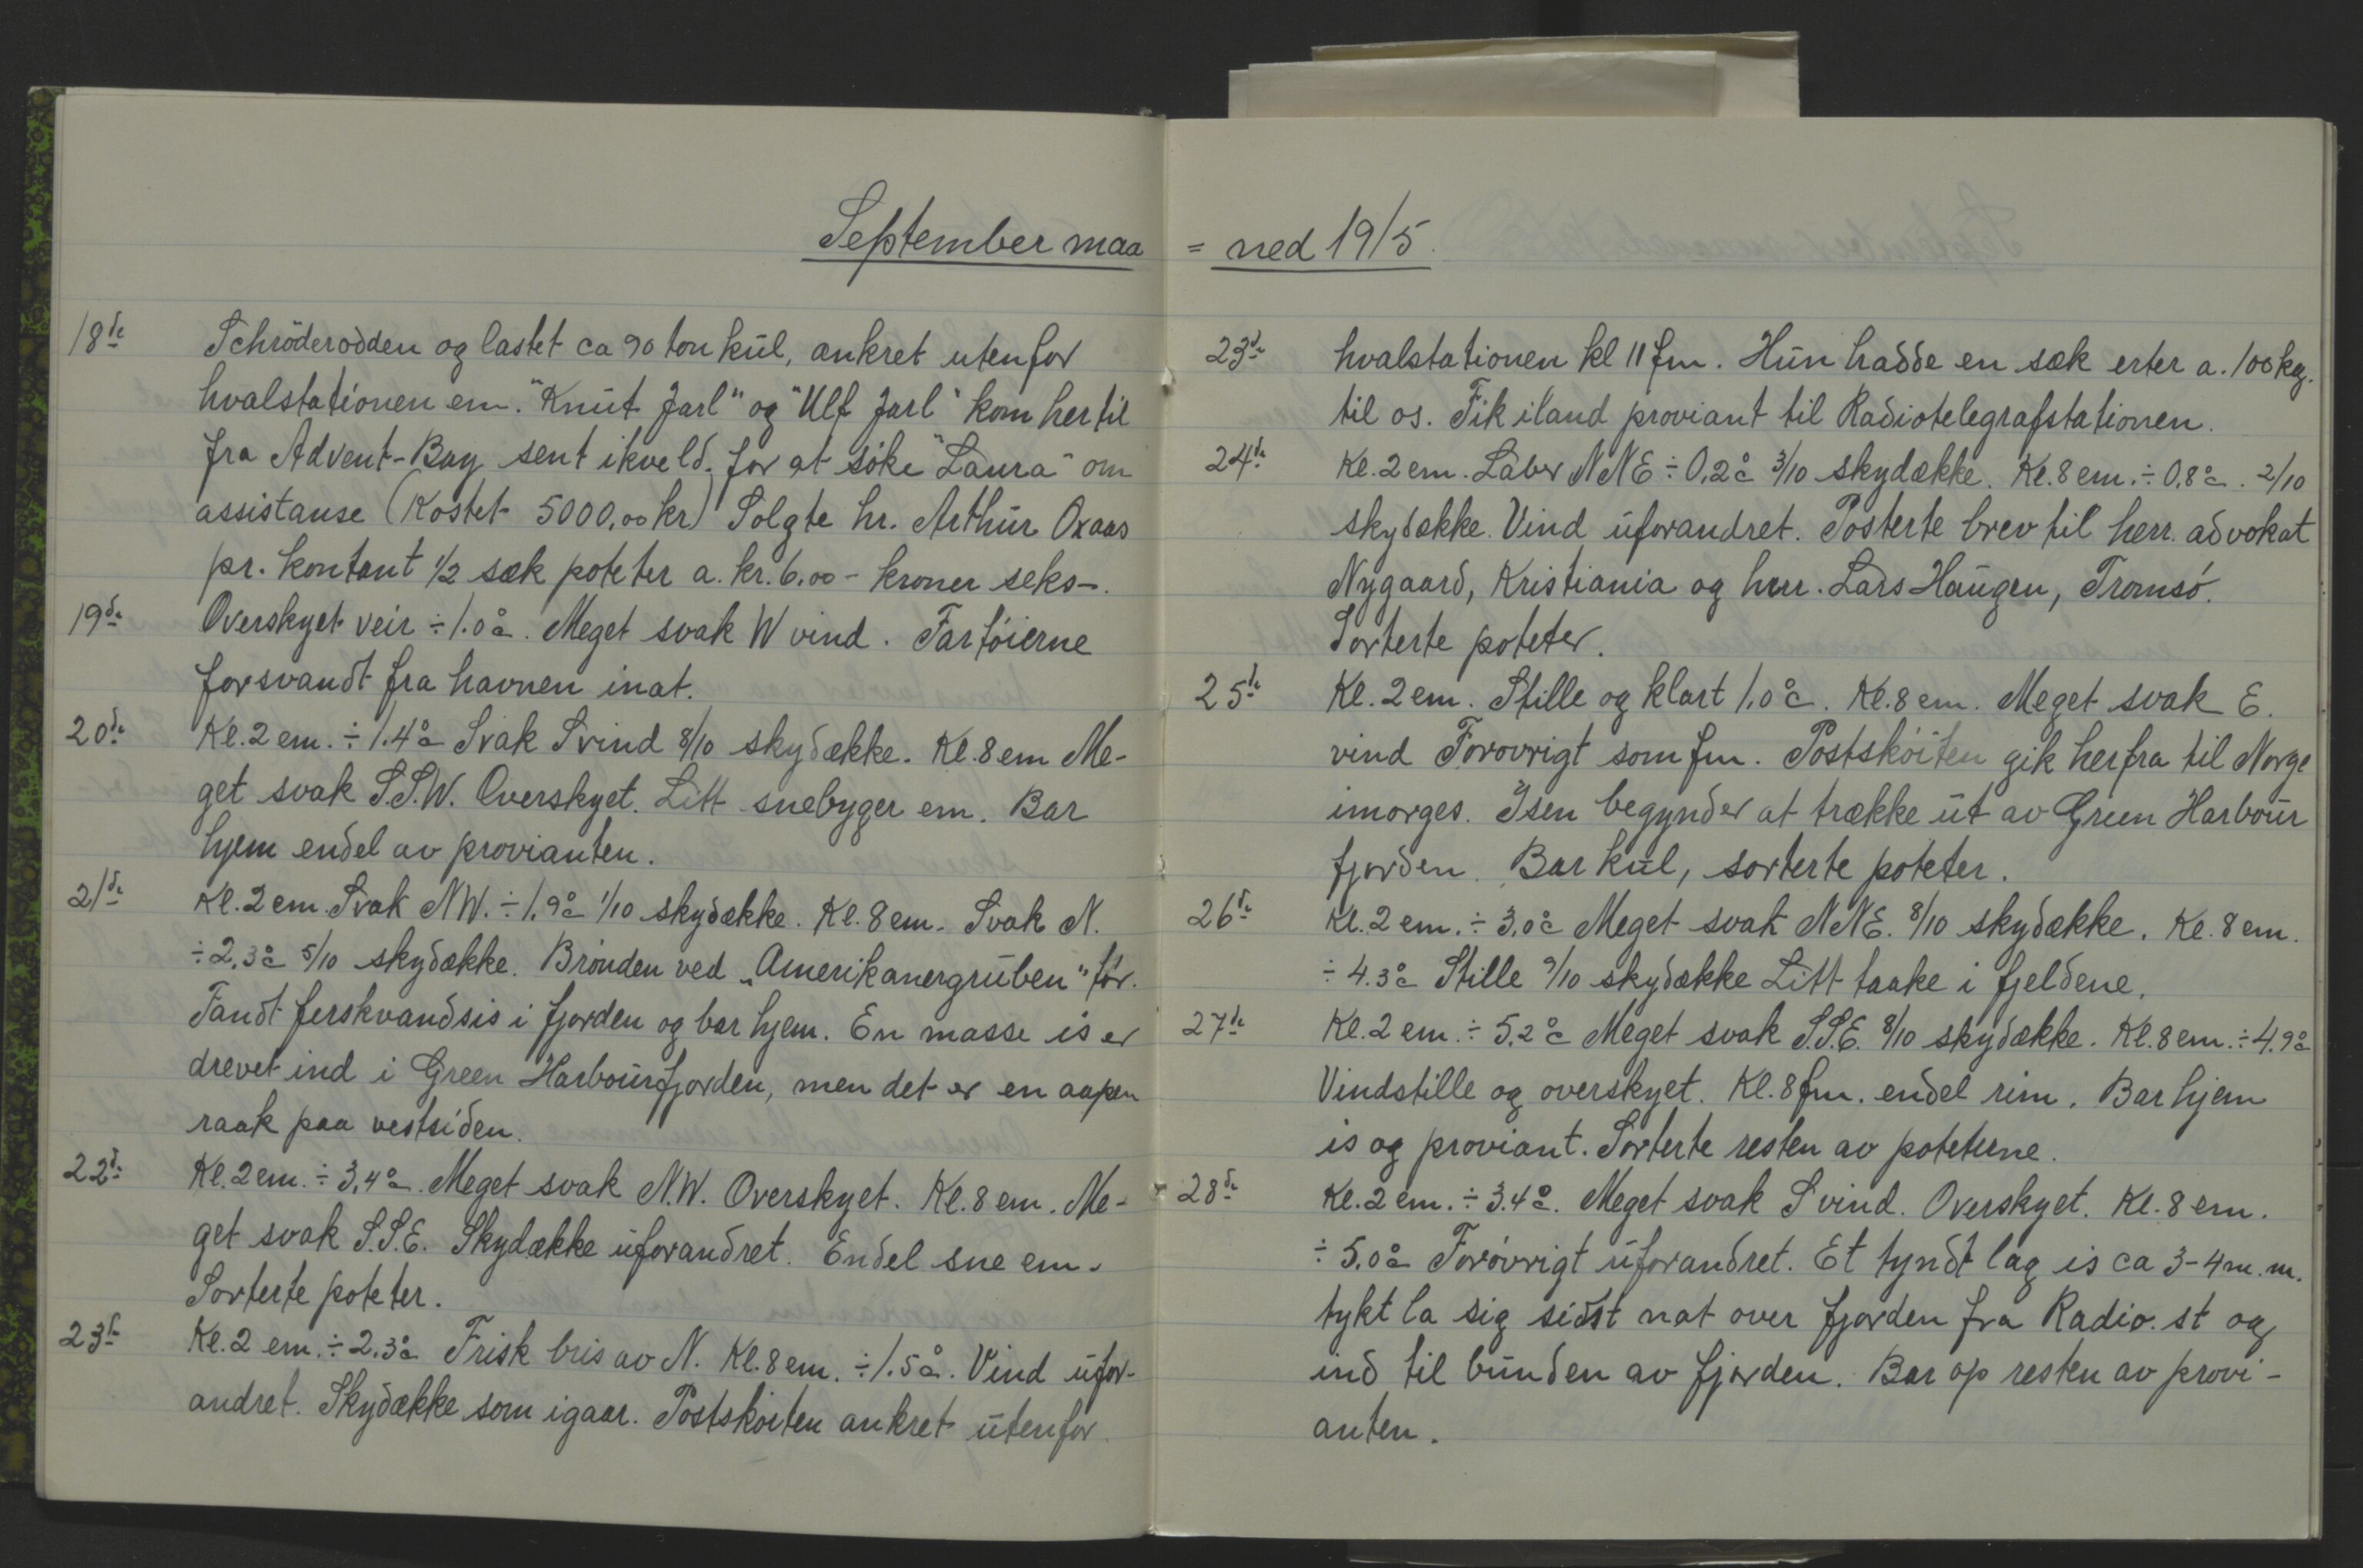 September maa = ned 1915.
18de Schröderodden og lastet ca 90 ton kul, ankret utenfor
hvalstationen em. "Knut Jarl" og "Ulf Jarl" kom hertil
fra Advent-Bay sent ikveld. for at söke "Laura" om
assistanse (Kostet 5000,00 kr) Solgte hr. Arthur Oxaas
pr. kontant 1/2 sæk poteter a. kr. 6,00 - kroner seks-.
19de Overskyet veir ÷ 1.0°c. Meget svak W vind. Fartöierne
forsvandt fra havnen inat.
20de Kl. 2 em. ÷ 1.4°c Svak S vind 8/10 skydække. Kl. 8 em Me-
get svak S.S.W. Overskyet. Litt snebyger em. Bar
hjem endel av provianten.
21de Kl. 2 em. Svak NW. ÷ 1,9°c 1/10 skydække. Kl. 8 em. Svak N.
÷ 2,3°c 5/10 skydække. Brönden ved „Amerikanergruben" tör.
Fandt ferskvandsis i fjorden og bar hjem. En masse is er
drevet ind i Green Harbourfjorden, men det er en aapen
raak paa vestsiden.
22de Kl. 2 em. ÷ 3,4°c. Meget svak N.W. Overskyet. Kl. 8 em. Me-
get svak S.S.E. Skydække uforandret. Endel sne em.
Sorterte poteter.
23de Kl. 2 em. ÷ 2.3°c Frisk bris av N. Kl. 8 em. ÷ 1.5°c. Vind ufor-
andret. Skydække som igaar. Postsköiten ankret utenfor
23de hvalstationen kl 11 fm. Hun hadde en sæk erter a. 100 kg.
til os. Fik iland proviant til Radiotelegrafstationen.
24de Kl. 2 em. Laber NNE ÷ 0,2°c 3/10 skydække. Kl. 8 em. ÷ 0,8°c. 2/10
skydække. Vind uforandret. Posterte brev til herr. advokat
Nygaard, Kristiania og herr. Lars Haugen, Tromsö.
Sorterte poteter.
25de Kl. 2 em. Stille og klart 1,0°c. Kl. 8 em. Meget svak E.
vind Forovrigt som fm. Postsköiten gik herfra til Norge
imorges. Isen begynder at trække ut av Green Harbour
fjorden. Bar kul, sorterte poteter.
26de Kl. 2 em. ÷ 3,0°c Meget svak NNE. 8/10 skydække. Kl. 8 em.
÷ 4.3°c Stille 9/10 skydække Litt taake i fjeldene.
27de Kl. 2 em. ÷ 5,2°c Meget svak S.S.E. 8/10 skydække. Kl. 8 em. ÷ 4.9°c
Vindstille og overskyet. Kl. 8 fm. endel rim. Bar hjem
is og proviant. Sorterte resten av poteterne.
28de Kl. 2 em. ÷ 3.4°c. Meget svak S vind. Overskyet. Kl. 8 em.
÷ 5,0°c Forövrigt uforandret. Et tyndt lag is ca 3-4 m.m.
tykt la sig sidst nat over fjorden fra Radio. st og
ind til bunden av fjorden. Bar op resten av provi-
anten.